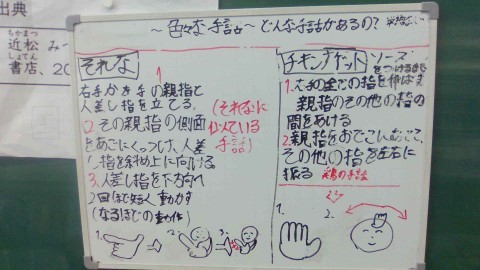 出典
ちかまつ
近松 み
しょてん
書店、20
〜色々な手話〜 どんな手話があるの?
それな
1
右手か左手の親指と
人差し指を立てる。
2.その親指の側面
をあごにくっつけ、人差
し指を斜め上に向ける
3.人差し指を下方向へ
2回ほど短く動かす
(なるほどの動作)
(それなに
似ている
手話)
1.
2.
3.
チキンナゲット ソース
をつける
1.右手の全ての指を伸ばす
親指のその他の指の
間をあける
2.親指をおでこに
その他の指を左右に
振る 鶏の手話
1.
2.